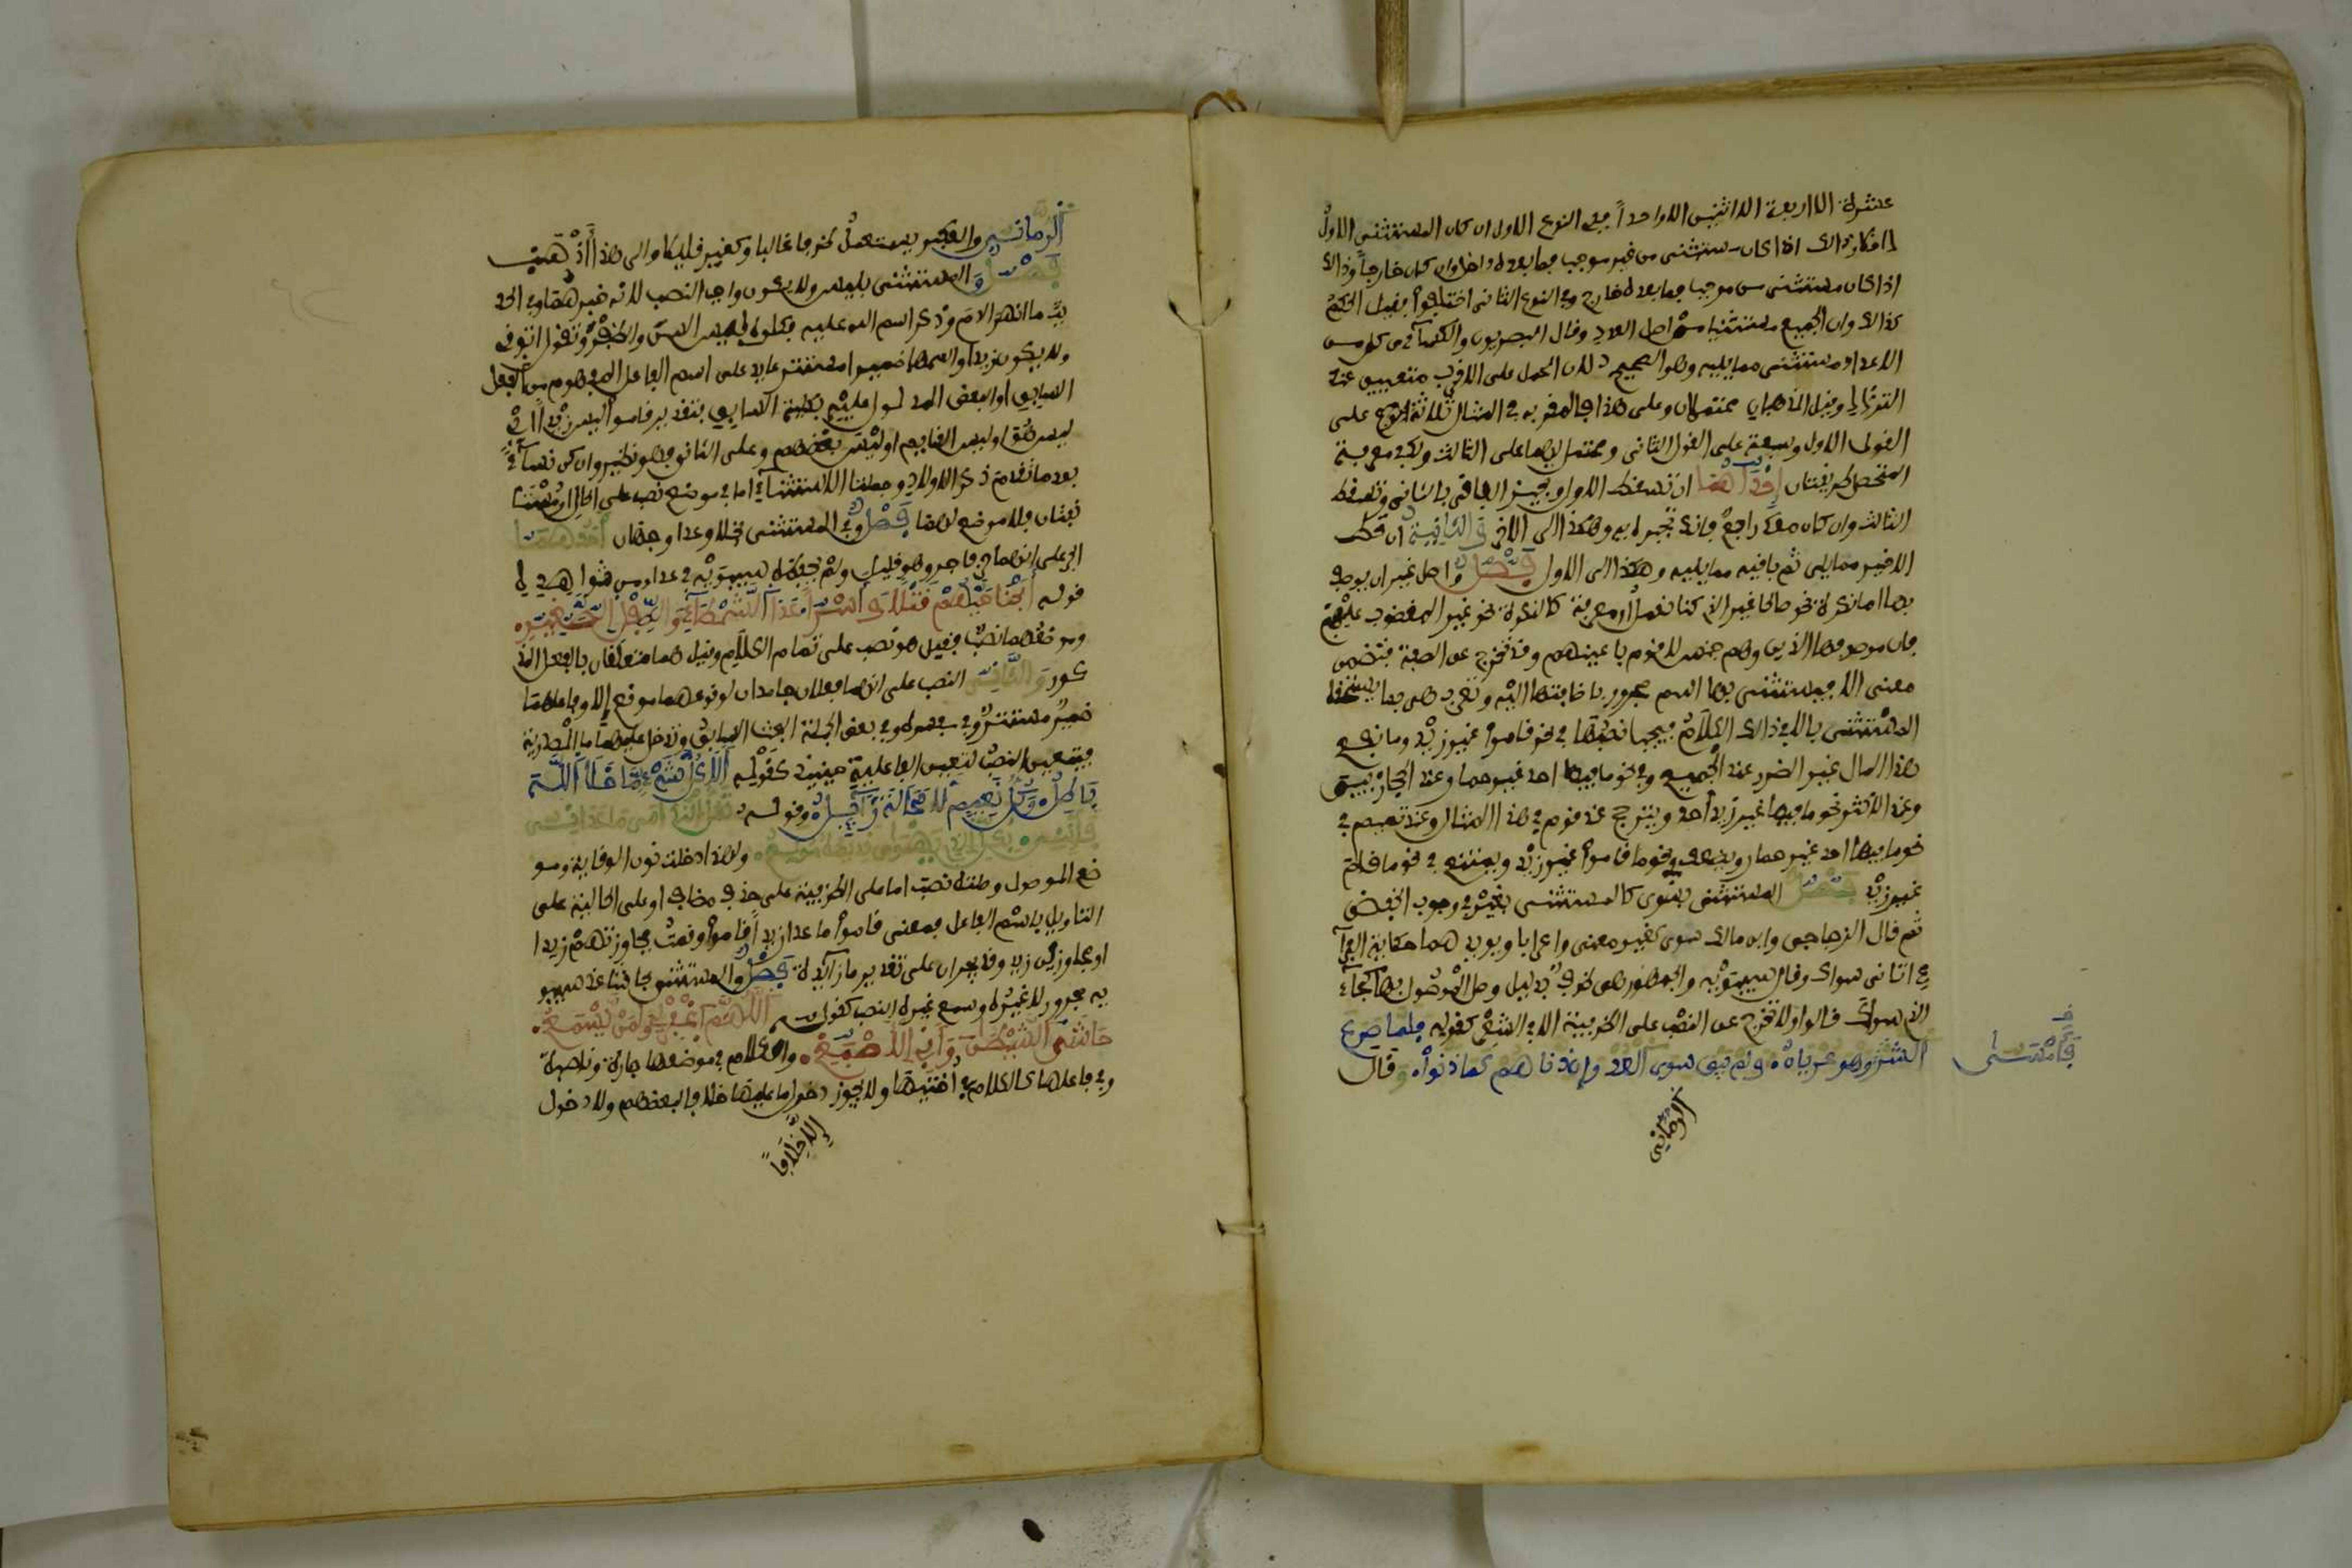 عشرة الا اربعة الا اثنين الا واحدا ففي النوع الاول ان كان المستثنى الاول
داخلا وذالك اذا كان مستثنى من غير موجب فما بعده داخل وان كان خارجا وذالك
اذا كان مستثنى من موجب فما بعده خارج وفي النوع الثاني اختلفوا فقيل الحكم
كذالك وان الجميع مستثنى من اصل العدد وقال البصريون والكسآءي كل من
الاعداد مستثنى مما يليه وهو الصحيح لان الحمل على الاقرب متعيين عند
التردد وقيل المذهبان محتملان وعلى هذا فالمقر به في المثال ثلاثة على
القول الاول وسبعة على القول الثاني ومحتمل لهما على الثالث ولك في معرفة
المتحصل طريقتان احداهما ان تسقط الاول وتجبر الباقي بالثاني وتسقط
الثالث وان كان معك رابع فانك تجبر به وهكذا الى الاخر والثانية ان تحط
الاخير مما يلي ثم باقيه مما يليه وهكذا الى الاول فصل واصل غير ان يوصف
بها اما نكرة نحو صالحا غير الذي كنا نعمل او معرفة كالنكرة نحو غير المغضوب عليهم
فان موصوفها الذين وهم جنس لا قوم باعينهم وقد تخرج عن الصفة فتضمن
معنى الا فيستثنى بها اسم مجرور باضافتها اليه وتعرب هي بما يستحقه
المستثنى بالا في ذالك الكلام فيجب نصبها في نحو قاموا غير زيد وما نفع
هذا المال غير الضرر عند الجميع وفي نحو ما فيها احد غير حمار عند الحجازيين
وعند الاكثر في نحو ما فيها غير زيد احد ويترجح عند قوم في هذا المثال وعند تميم في
نحو ما فيها احد غير حمار ويضعف في نحو ما قاموا غير زيد ويمتنع في نحو ما قام
غير زيد فصل المستثنى بسوى كالمستثنى بغير في وجوب الخفض
ثم قال الزجاجي وابن مالك سوى كغير معنى واعرابا ويويدهما حكاية الفرآ
ء اتاني سواك وقال سيبويه والجمهور هي ظرف بدليل وصل الموصول بها كجآء
الذي سواك قالوا ولا تخرج عن النصب على الظرفية الا في الشعر كقوله فلما صرح
الشر وهو عريان ولم يبق سوى العدوان دناهم كما دانوا وقال
فأمسى
الرماني
الرماني والعكبري يستعمل ظرفا غالبا وكغير قليلا والى هذا اذهب
فصل والمستثنى بليس ولا يكون واجب النصب لانه خبرهما وفي الحد
يث ما انهر الدم وذكر اسم الله عليه فكلوه ليس السن والظفر وتقول اتوني
ولا يكون زيدا واسمها ضمير مستتر عايد على اسم الفاعل المفهوم من الفعل
السابق او البعض المدلول عليه بكلية السابق فتقدير قاموا ليس زيدا
ليس هو اي ليس القايم او ليس بعضهم وعلى الثاني فهو نظير وان كن نسآء
بعد ما تقدم ذكر الاولاد وجملتا الاستثنآء اما في موضع نصب على الحال او مستأ
نفتان فلا موضع لهما فصل وفي المستثنى بخلا وعدا وجهان احدهما
الجر على انهما حرفا جر وهو قليل ولم يحفظه سيبويه في عدا ومن شواهده
قوله ابحنا حيهم قتلا واسرا عدا الشمطآء والطفل الصغير
وموضعهما نصب فقيل هو نصب على تمام الكلام وقيل هما متعلقان بالفعل المذ
كور والثاني النصب على انهما فعلان جامدان لوقوعهما موقع الا وفاعلهما
ضمير مستتر وفي مفسره وفي بعض الجملة البحث السابق وتدخل عليهما ما المصدرية
فيتعين النصب لتعين الفعلية حينيذ كقوله الا كل شيء ما خلا الله
باطل وكل نعيم لا محالة زايل وقوله تمل الندامى ما عداني
فانني بكل الذي يهوى نديمي مولع ولهذا دخلت نون الوقاية ومو
ضع الموصول وصلته نصب اما على الظرفية على حذف مضاف او على الحالية على
التاويل باسم الفاعل فمعنى قاموا ما عدا زيدا قاموا وقت مجاوزتهم زيدا
او مجاوزين زيدا وقد يجران على تقدير ما زآيدة فصل والمستثنى بحاشا عند سيبو
يه مجرور لا غير وسمع غيره النصب كقوله اللهم اغفر لي ولمن يسمع
حاشى الشيطان وابا الاصبغ والكلام في موضعها جارة وناصبة
وفي فاعلها كالكلام في اختيها ولا يجوز دخول ما عليها خلافا لبعضهم ولا دخول
الا خلافا